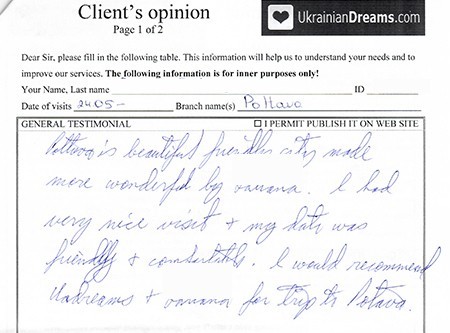 Client's opinion
Page 1 of 2
UkrainianDreams.com
Dear Sir, please fill in the following table. This information will help us to understand your needs and to
improve our services. The following information is for inner purposes only!
Your Name, Last name ID
Date of visits 24.05- Branch name(s) Poltava
GENERAL TESTIMONIAL ☐ I PERMIT PUBLISH IT ON WEB SITE
Poltava is beautiful friendly city made
more wonderful by . I had
very nice visit + my date was
friendly + comfortable. I would recommend
Uadreams + for trip to Potava.